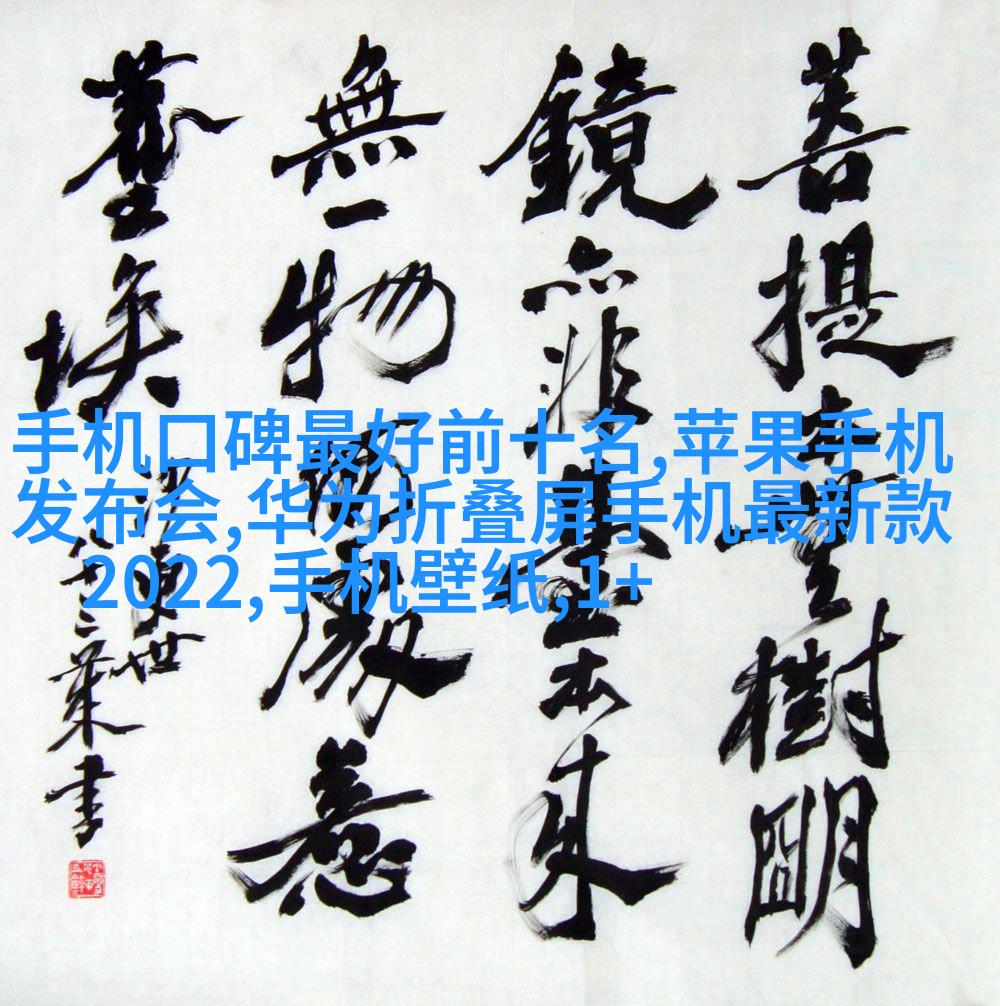 菩提本無樹明
鏡亦非臺本来
無一物何處惹
塵埃
書
手机口碑最好前十名,苹果手机
发布会,华为折叠屏手机最新款
2022,手机壁纸,1+